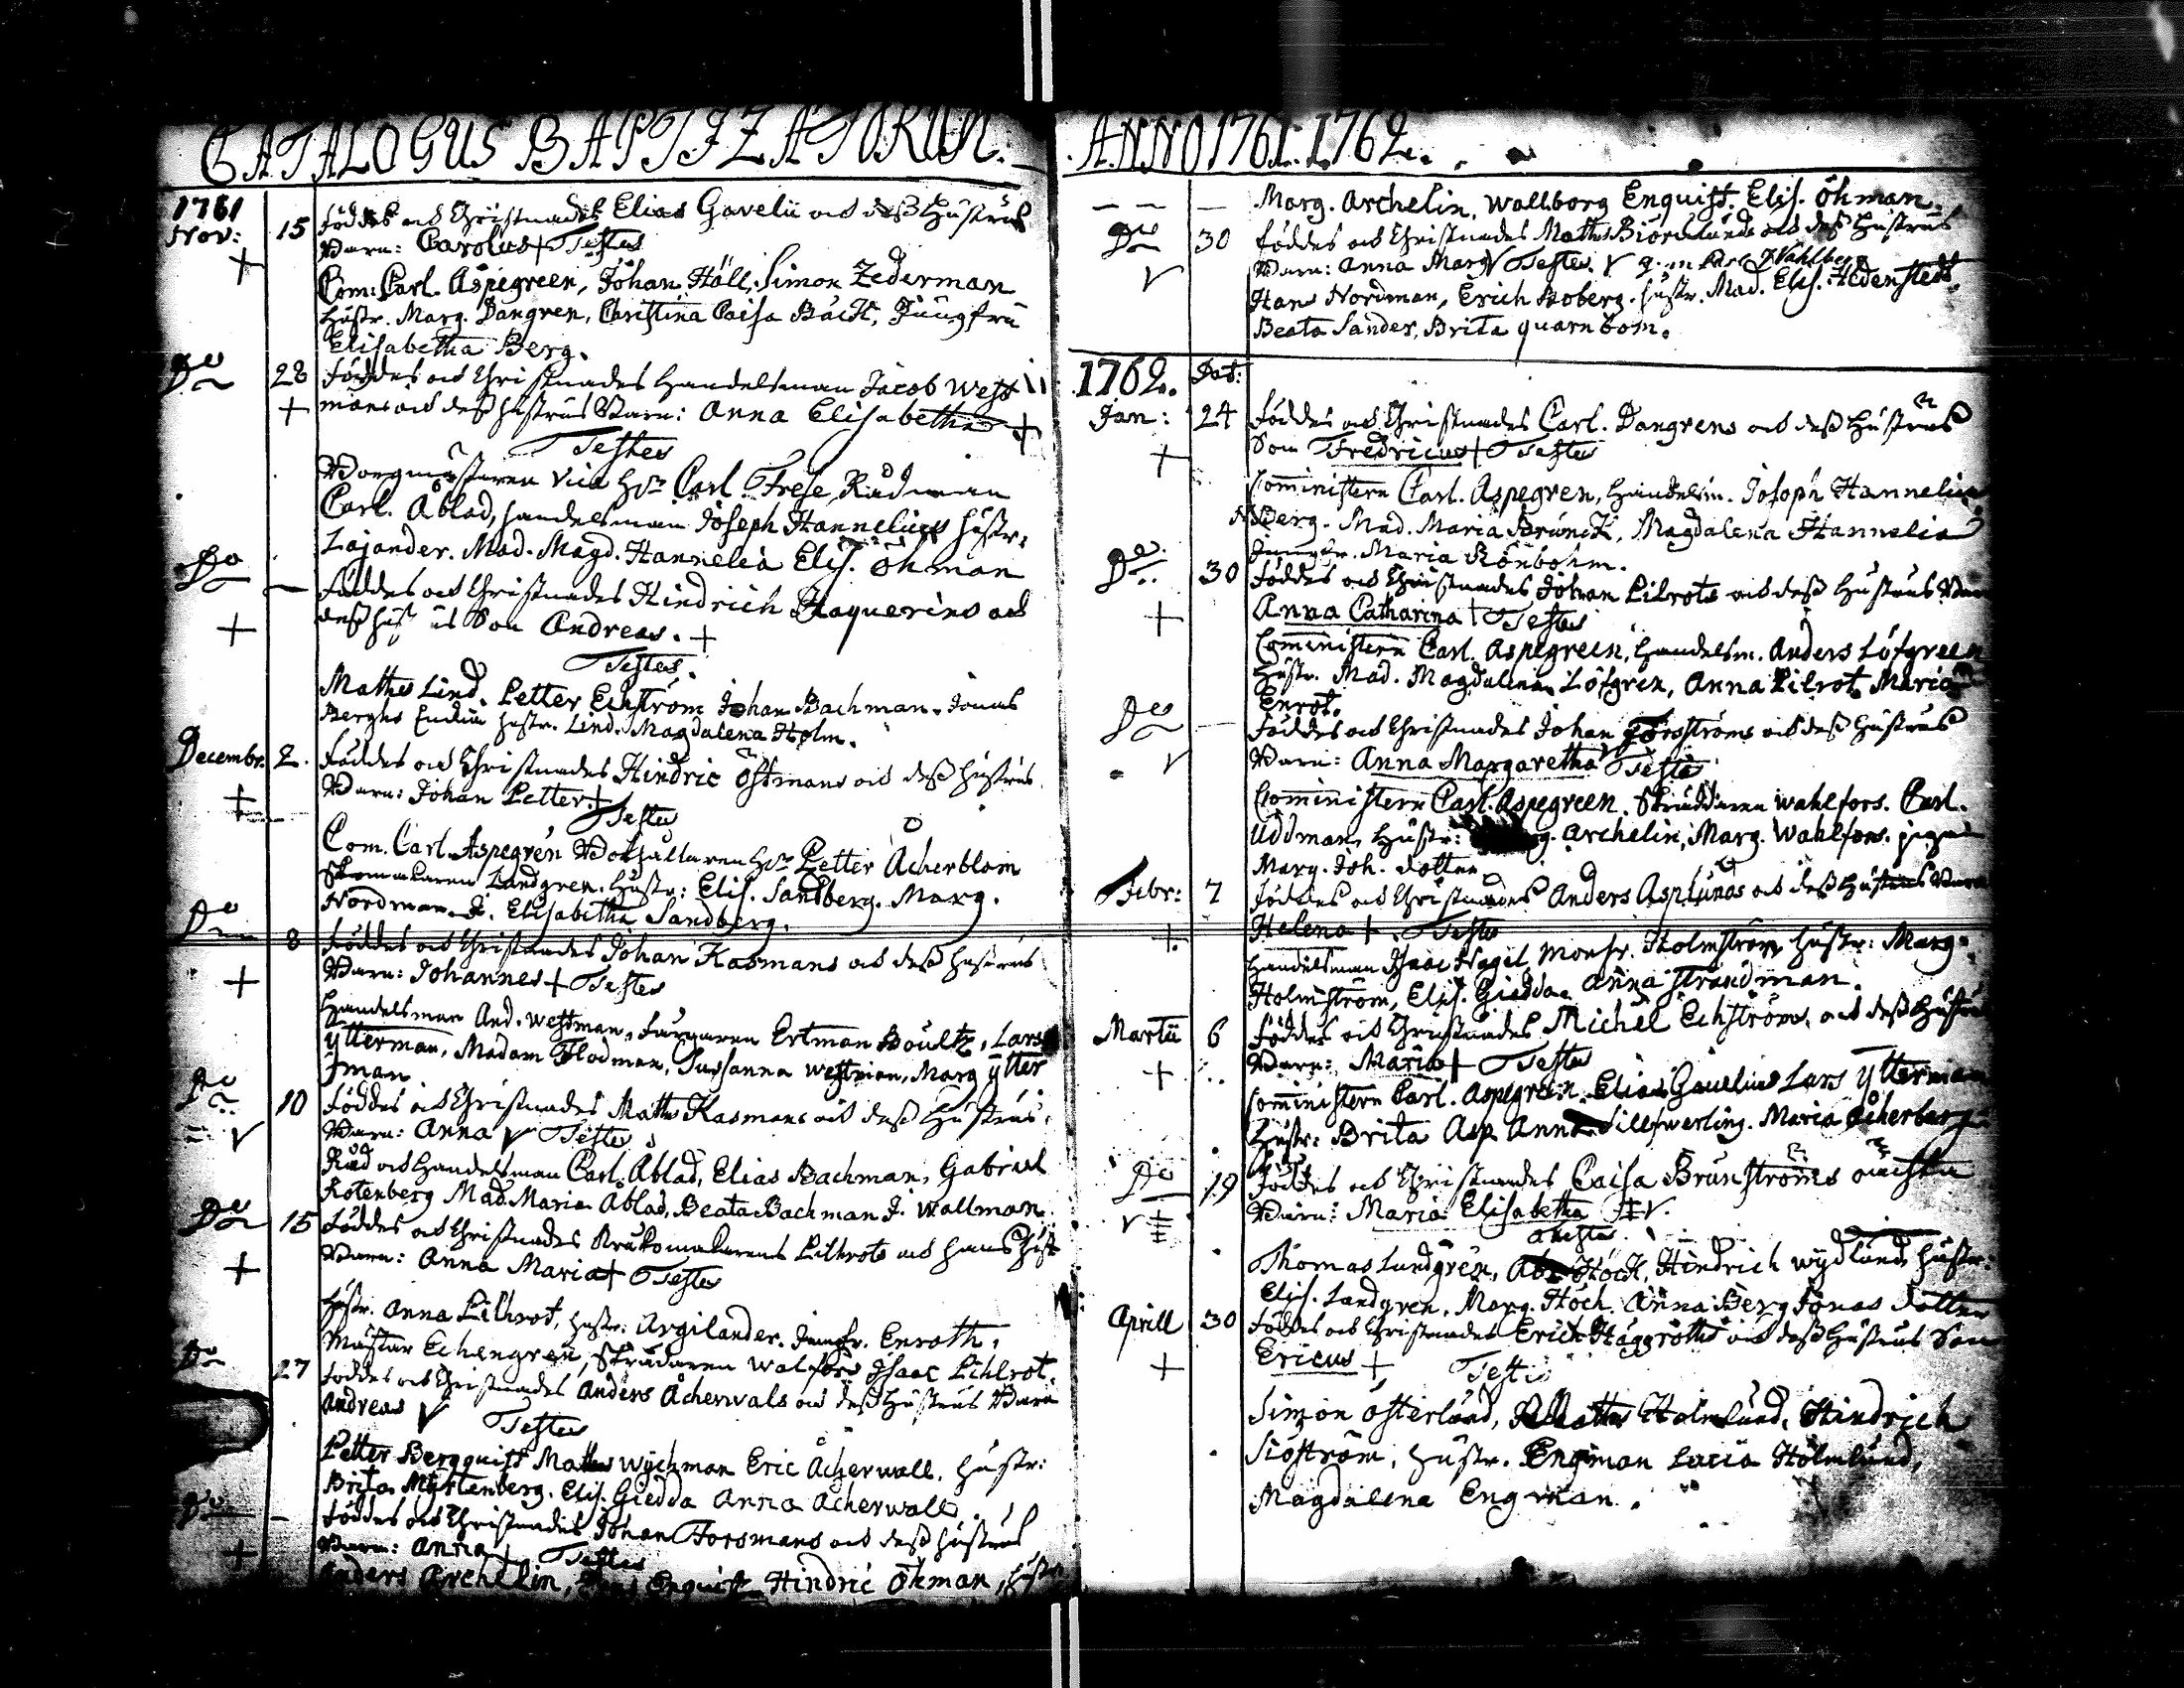 CATALOGUS BAPTIZATORUM.
1761
Nov: 15 föddes och Christnades Elias Gavelii och deß hustrus
Barn: Carolus + Testes
Com: Carl Aspegreen, Johan Höll, Simon Zederman
hustr. Marg. Dangren, Christina Caisa Bäck, Jungfru
Elisabetha Berg.
Do 28 föddes och Christnades Handelsman Jacob West
+ mans och deß hustrus Barn: Anna Elisabetha +
Testes
Borgmästaren Carl Frese Rådman
Carl Ablad, handelsman Joseph Hannelius hustr.
Lajander. Mad. Magd. Hannelia Elis. Öhman
Do — föddes och Christnades Hindrich och
+ deß hustrus Son Andreas. +
Testes.
Mathes Lind. Petter Echström Johan Bachman. Jonas
hustr. Lind. Magdalena Holm.
Decembr. 2. föddes och Christnades Hindric Östmans och deß hustrus
+ Barn: Johan Petter. +
Testes
Com. Carl Aspegrén Bokhållaren Hr Petter Åcherblom
Skomakaren Landgren. hustr: Elis. Sandberg. Marg.
Nordman. J. Elisabetha Sandberg.
Do 8 föddes och Christnades Johan Kasmans och deß hustrus
+ Barn: Johannes + Testes
Handelsman And. Westman, Färgaren Ertman Boultz, Lars
Ytterman, Madam Flodman, Sussanna Westman, Marg Ytter
man
Do 10 föddes och Christnades Matts Kasmans och deß Hustrus
V Barn: Anna V Testes
Råd och Handelsman Carl Ablad, Elias Bachman, Gabriel
Rotenberg Mad. Maria Ablad, Beata Bachman J. Wallman
Do 15 föddes och Christnades Krukomakarens Lilhrots och hans hust
+ Barn: Anna Maria + Testes
hustr. Anna Lilhrot, hustr: Argilander. Jungfr. Enroth,
Mästar Echengren, Skrädaren Walfors Isaac Lihlrot.
Do 27 föddes och Christnades Anders Åcherwals och deß hustrus Barn
Andreas V Testes
Petter Bergquist Matts Wychman Eric Åcherwall. hustr:
Brita Myrtenberg. Elis. Giedda Anna Acherwall.
Do — föddes och Christnades Johan Forsmans och deß hustrus
+ Barn: Anna + Testes
Anders Archelin, Enquist Hindric Öhman, hustr
ANNO 1761. 1762.
— — — Marg. Archelin, Wallborg Enquist. Elis. Öhman.
Do 30 föddes och Christnades Matts Biörcklunds och deß hustrus
V Barn: Anna Marg V Testes. V Wahlberg
Hans Nordman, Erich Boberg. hustr. Mad. Elis. Hedenstedt.
Beata Sander, Brita Quarnbom.
1762. Dat:
Jan: 24 föddes och Christnades Carl. Dangrens och deß hustrus
+ Son Fredricus + Testes
Comministern Carl. Aspegren, Handelsm. Joseph Hannelius
Berg. Mad. Maria Brunck, Magdalena Hannelia
Jungfr. Maria Rönbohm.
Do 30 föddes och Christnades Johan Lilrots och deß hustrus Barn
+ Anna Catharina + Testes
Comministern Carl. Aspegreen, Handelsm. Anders Löfgreen
hustr. Mad. Magdalena Löfgrén, Anna Lilrot, Maria
Enrot.
Do — föddes och Christnades Johan Forsströms och deß hustrus
V Barn: Anna Margaretha V Testes
Comministern Carl. Aspegreen. Skräddaren Wahlfors. Carl.
Uddman, hustr: Archelin, Marg. Wahlfors. pigan
Marg. Joh. dotter
Febr: 7 föddes och Christnades Anders Asplunds och deß hustrus Barn
+ Helena + Testes
Handelsman Isaac Nagel, Monsr. Holmström hustr: Marg.
Holmström, Elis. Giedda. Anna Strandman.
Martii 6 föddes och Christnades Michel Echströms och deß hustrus
+ Barn: Maria + Testes
Comministern Carl. Aspegren. Elias Gavelius Lars Ytterman
hustr: Brita Asp. Anna Sillfwerling. Maria Åcherberg
Do 19 föddes och Christnades Caisa Brunströms oächta
V Barn: Maria Elisabetha V.
Testes.
Thomas Landgrén, Höck, Hindrich Wydlund hustr:
Elis. Landgren. Marg. Höck. Anna Berg Jonas dotter
Aprill 30 föddes och Christnades Erich Häggroths och deß hustrus Son
+ Ericus + Testes
Simon Österlund, Matts Holmlund, Hindrich
Siöström, hustr. Engman Lucia Holmlund,
Magdalena Engman.